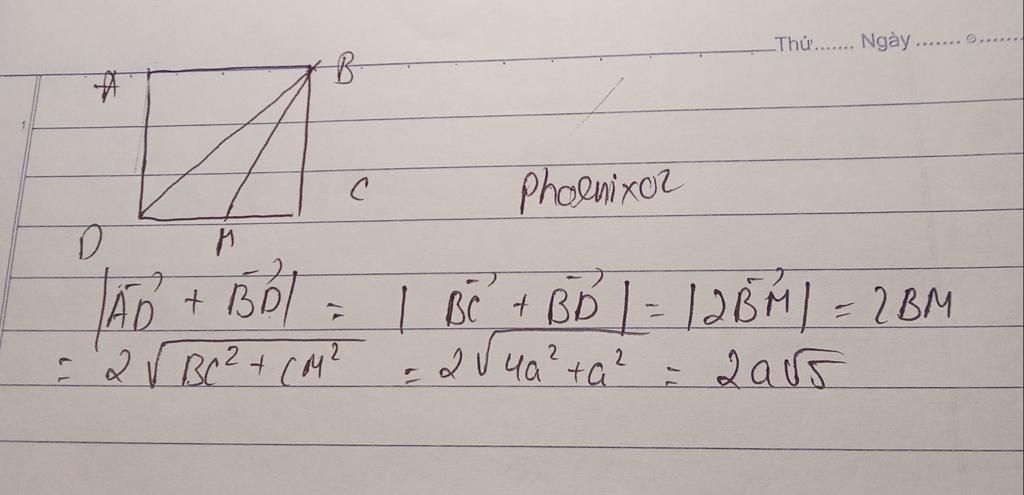 Thứ....... Ngày ....... ⊙.......
A B
C Phoenix02
D M
|AD⃗ + BD⃗| = | BC⃗ + BD⃗ | = |2BM⃗| = 2BM
= 2√(BC² + CM²) = 2√(4a² + a²) = 2a√5